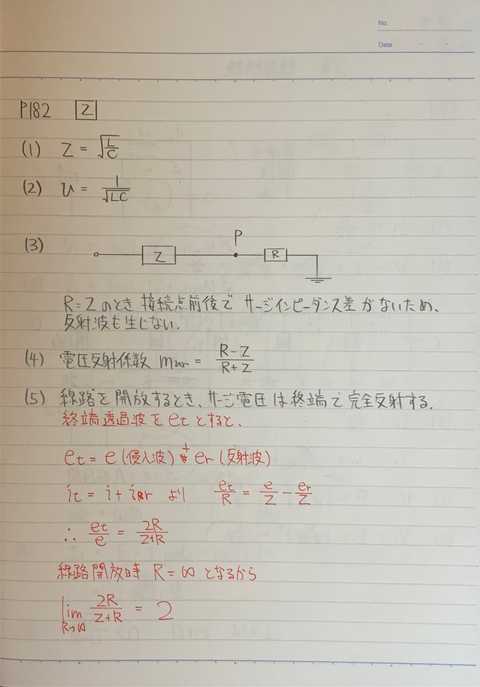 No.
Date
P182 [2]
(1) Z = √(L/C)
(2) u = 1/√LC
(3)
P
Z R
R=Zのとき 接続点前後で サージインピーダンス差がないため、
反射波も生じない.
(4) 電圧反射係数 mur = (R-Z)/(R+Z)
(5) 線路を開放するとき、サージ電圧は終端で完全反射する.
終端透過波を etとすると、
et = e (侵入波) + er (反射波)
it = i + ir より et/R = e/Z - er/Z
∴ et/e = 2R/(Z+R)
線路開放時 R = ∞ となるから
lim R→∞ 2R/(Z+R) = 2